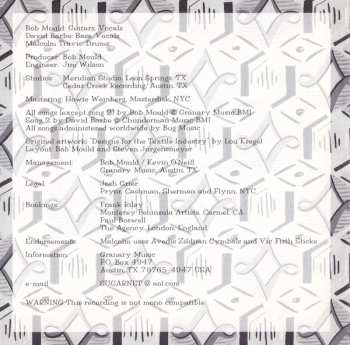 Bob Mould: Guitars, Vocals
David Barbe: Bass, Vocals
Malcolm Travis: Drums
Producer: Bob Mould
Engineer: Jim Wilson
Studios: Meridian Studio, Leon Springs, TX
Cedar Creek Recording, Austin, TX
Mastering: Howie Weinberg, Masterdisk, NYC
All songs (except song 2) by Bob Mould © Granary Music BMI
Song 2 by David Barbe © Thunderman Music BMI
All songs administered worldwide by Bug Music
Original artwork: 'Designs for the Textile Industry' by Lou Kregel
Layout: Bob Mould and Steven Jurgensmeyer
Management: Bob Mould / Kevin O'Neill
Granary Music, Austin, TX
Legal: Josh Grier
Pryor, Cashman, Sherman and Flynn, NYC
Bookings: Frank Riley
Monterey Peninsula Artists, Carmel, CA
Paul Boswell
The Agency, London, England
Endorsements: Malcolm uses Avedis Zildjian Cymbals and Vic Firth Sticks
Information: Granary Music
P.O. Box 4947
Austin, TX 78765-4947 USA
e-mail: SUGARNET @ aol.com
WARNING: This recording is not mono compatible.